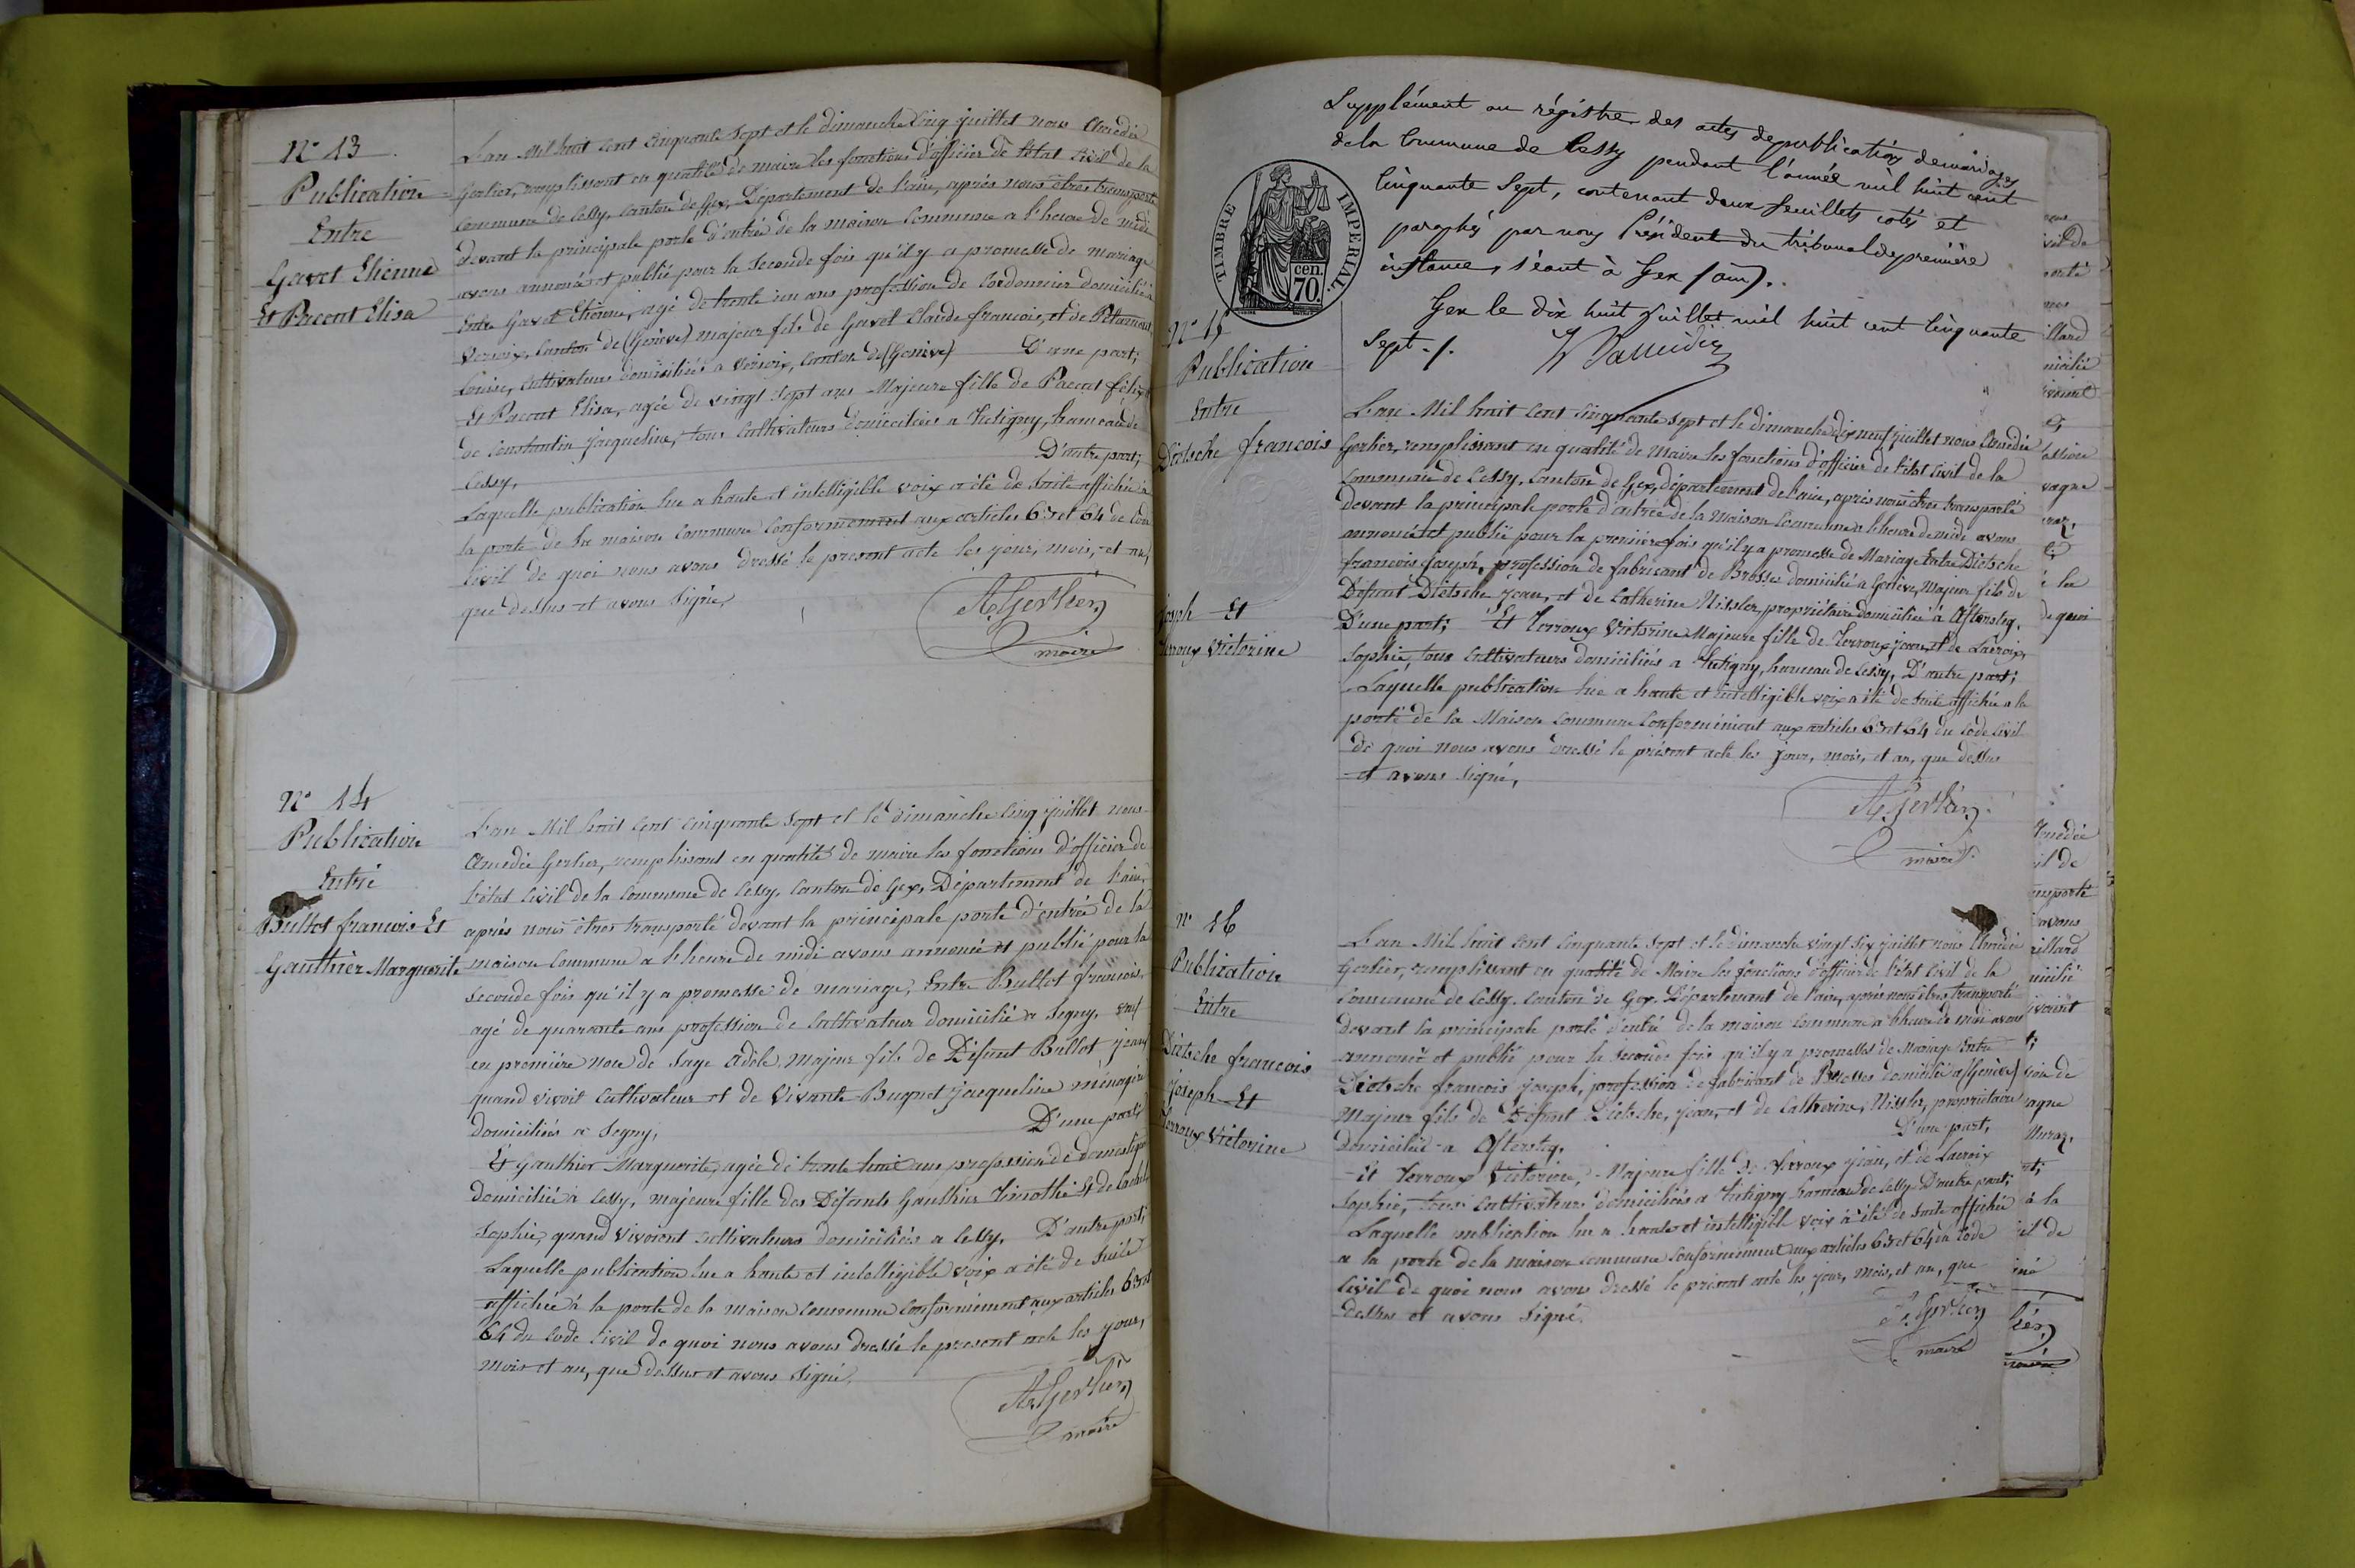 N° 13
Publication
Entre
Gavet Etienne
Et Pacout Elisa
L'an Mil huit cent cinquante sept et le dimanche cinq juillet nous Amedée
Gerlier, remplissant en qualité de maire les fonctions d'officier de l'état civil de la
commune de Cessy, canton de Gex, Département de l'ain, après nous êtres transporté
devant la principale porte d'entrée de la maison commune a l'heure de midi
avons annoncé et publié pour la seconde fois qu'il y a promesse de mariage
Entre Gavet Etienne, agé de trente un ans profession de Cordonnier domicilié a
Versoix, canton de (Genève) majeur fils de Gavet Claude francois, et de
Louise, cultivateurs domiciliés a Versoix, canton de (Genève) D'une part;
Et Pacout Elisa, agée de vingt sept ans Majeure fille de Pacout félix
de Constantin Jacqueline, tous cultivateurs domiciliés a Tutigny, hameau de
Cessy, D'autre part;
Laquelle publication lue a haute et intelligible voix a été de suite affichée a
la porte de la maison commune conformement aux articles 63 et 64 du Code
civil de quoi nous avons dressé le present acte les jour, mois, et an,
que dessus et avons signé,
Ae Gerlier
maire
N° 14
Publication
Entre
Bullot francois Et
Gauthier Marguerite
L'an Mil huit cent cinquante sept et le dimanche cinq juillet nous
Amedée Gerlier, remplissant en qualité de maire les fonctions d'officier de
l'état civil de la commune de Cessy, canton de Gex, Département de l'ain,
après nous êtres transporté devant la principale porte d'entrée de la
maison commune a l'heure de midi avons annoncé et publié pour la
seconde fois qu'il y a promesse de mariage, Entre Bullot francois,
agé de quarante ans profession de cultivateur domicilié a Segny, veuf
en première noce de Sage Adèle, majeur fils de Défunt Bullot jean
quand vivoit cultivateur et de Vivante Buquet jacqueline ménagère
domiciliés a Segny, D'une part;
Et Gauthier Marguerite, agée de trente huit ans profession de domestique
domiciliée à Cessy, majeure fille des Défunts Gauthier Timothé et de
Sophie, quand vivoient cultivateurs domiciliés a Cessy, D'autre part;
Laquelle publication lue a haute et intelligible voix a été de suite
affichée à la porte de la maison commune conformément aux articles 63 et
64 du Code civil de quoi nous avons dressé le present acte les jour,
mois et an, que dessus et avons signé,
Ae Gerlier
maire
Supplément au régistre des actes de publication de mariages
de la Commune de Cessy pendant l'année mil huit cent
Cinquante sept, contenant deux feuillets cotés et
paraphés par nous Président du tribunal de première
instance, séant à Gex (ain).
Gex le dix huit juillet mil huit cent cinquante
Sept./.
TIMBRE IMPERIAL.
cen.
70.
N° 15
Publication
Entre
Dietsche francois
Joseph Et
Terroux Victorine
L'an Mil huit cent cinquante sept et le dimanche dix neuf juillet nous Amedée
Gerlier, remplissant en qualité de Maire les fonctions d'officier de l'état civil de la
commune de Cessy, canton de Gex, département de l'ain, après nous êtres transporté
devant la principale porte d'entrée de la Maison commune a l'heure de midi avons
annoncé et publié pour la première fois qu'il y a promesse de Mariage Entre Dietsche
francois joseph, profession de fabricant de Brosses domicilié a Genève, Majeur fils de
Défunt Dietsche jean, et de Catherine Nissler, propriétaire domiciliée à Aftersteg,
D'une part; Et Terroux Victorine Majeure fille de Terroux jean, et de Lacroix,
Sophie, tous cultivateurs domiciliés a Tutigny, hameau de Cessy, D'autre part;
Laquelle publication lue a haute et intelligible voix a été de suite affichée a la
porte de la Maison commune conformément aux articles 63 et 64 du Code civil
de quoi nous avons dressé le présent acte les jour, mois, et an, que dessus
et avons signé,
Ae Gerlier
maire
N° 16
Publication
Entre
Dietsche francois
joseph Et
Terroux Victorine
L'an Mil huit cent cinquante sept et le dimanche vingt six juillet nous Amedée
Gerlier, remplissant en qualité de Maire les fonctions d'officier de l'état civil de la
commune de Cessy, canton de Gex, Département de l'ain, après nous êtres transporté
devant la principale porte d'entrée de la maison commune a l'heure de midi avons
annoncé et publié pour la seconde fois qu'il y a promesses de Mariage Entre
Dietsche francois joseph, profession de fabricant de Brosses domicilié a (Genève)
Majeur fils de Défunt Dietsche, jean, et de Catherine, Nissler, propriétaire
domiciliée a Aftersteg, D'une part,
Et Terroux Victorine, Majeure fille de Terroux jean, et de Lacroix
Sophie, tous cultivateurs domiciliés a Tutigny hameau de Cessy D'autre part;
Laquelle publication lue a haute et intelligible voix à été de suite affichée
a la porte de la maison commune conformément aux articles 63 et 64 du Code
civil de quoi nous avons dressé le présent acte les jour, mois, et an, que
dessus et avons signé.
Ae Gerlier
maire